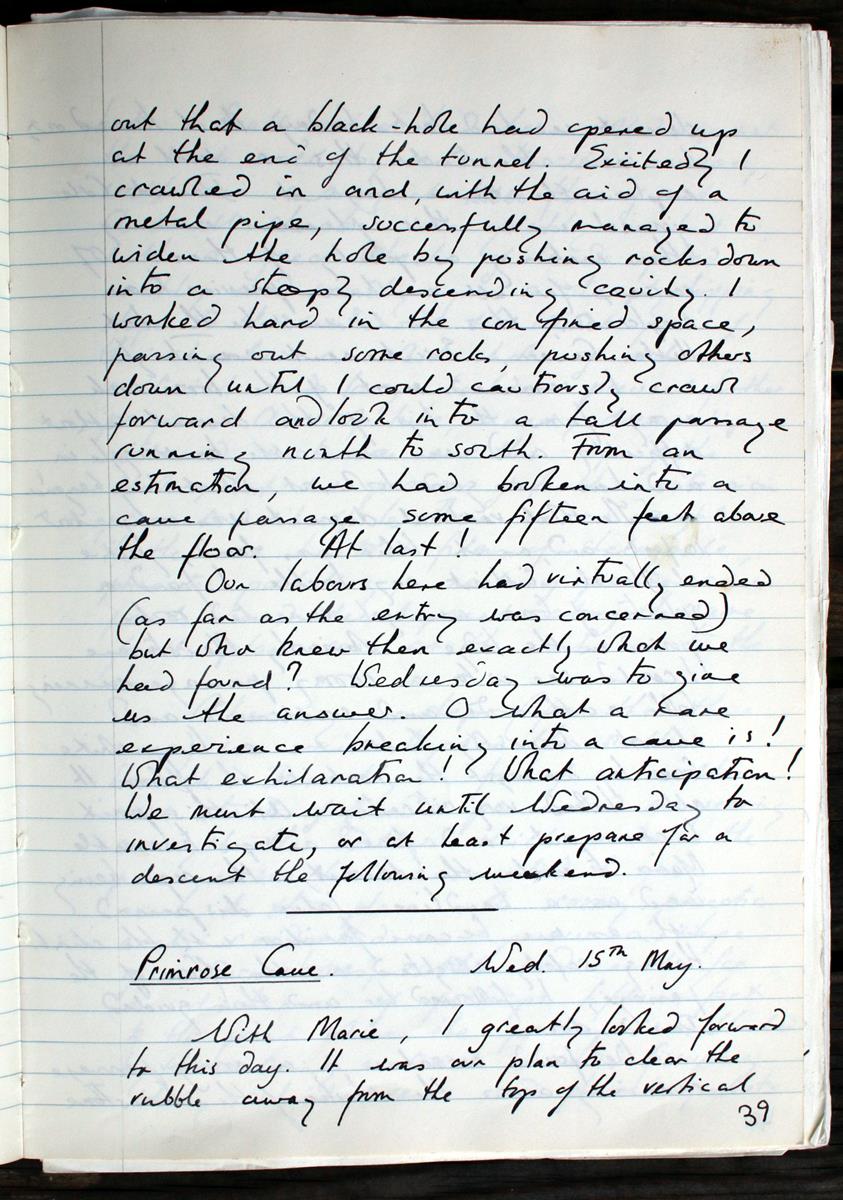 out that a black-hole had opened up
at the end of the tunnel. Excitedly I
crawled in and, with the aid of a
metal pipe, successfully managed to
widen the hole by pushing rocks down
into a steeply descending cavity. I
worked hard in the confined space,
passing out some rocks, pushing others
down until I could cautiously crawl
forward and look into a tall passage
running north to south. From an
estimation, we had broken into a
cave passage some fifteen feet above
the floor. At last!
Our labours here had virtually ended
(as far as the entry was concerned)
but who knew then exactly what we
had found? Wednesday was to give
us the answer. O what a rare
experience breaking into a cave is!
What exhilaration! What anticipation!
We must wait until Wednesday to
investigate, or at least prepare for a
descent the following weekend.
Primrose Cave. Wed. 15th May.
With Marie, I greatly looked forward
to this day. It was our plan to clear the
rubble away from the top of the vertical
39